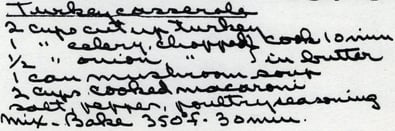 Turkey casserole
2 cups cut up turkey
1 " celery, chopped } cook 10 min
1/2 " onion " } in butter
1 can mushroom soup
2 cups cooked macaroni
salt, pepper, poultry seasoning
mix - Bake 350°f. 30 min.